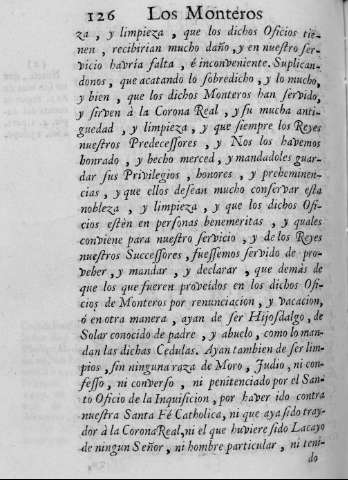 126 Los Monteros
za, y limpieza, que los dichos Oficios tie-
nen, recibirian mucho daño, y en nuestro ser-
vicio havria falta, é inconveniente. Suplican-
donos, que acatando lo sobredicho, y lo mucho,
y bien, que los dichos Monteros han servido,
y sirven à la Corona Real, y su mucha anti-
guedad, y limpieza, y que siempre los Reyes
nuestros Predecessores, y Nos los havemos
honrado, y hecho merced, y mandadoles guar-
dar sus Privilegios, honores, y preheminen-
cias, y que ellos desean mucho conservar esta
nobleza, y limpieza, y que los dichos Ofi-
cios estèn en personas benemeritas, y quales
conviene para nuestro servicio, y de los Reyes
nuestros Successores, fuessemos servido de pro-
veher, y mandar, y declarar, que demàs de
que los que fueren proveìdos en los dichos Ofi-
cios de Monteros por renunciacion, y vacacion,
ó en otra manera, ayan de ser Hijosdalgo, de
Solar conocido de padre, y abuelo, como lo man-
dan las dichas Cedulas. Ayan tambien de ser lim-
pios, sin ninguna raza de Moro, Judio, ni con-
fesso, ni converso, ni penitenciado por el San-
to Oficio de la Inquisicion, por haver ido contra
nuestra Santa Fé Catholica, ni que aya sido tray-
dor à la Corona Real, ni el que huviere sido Lacayo
de ningun Señor, ni hombre particular, ni teni-
do